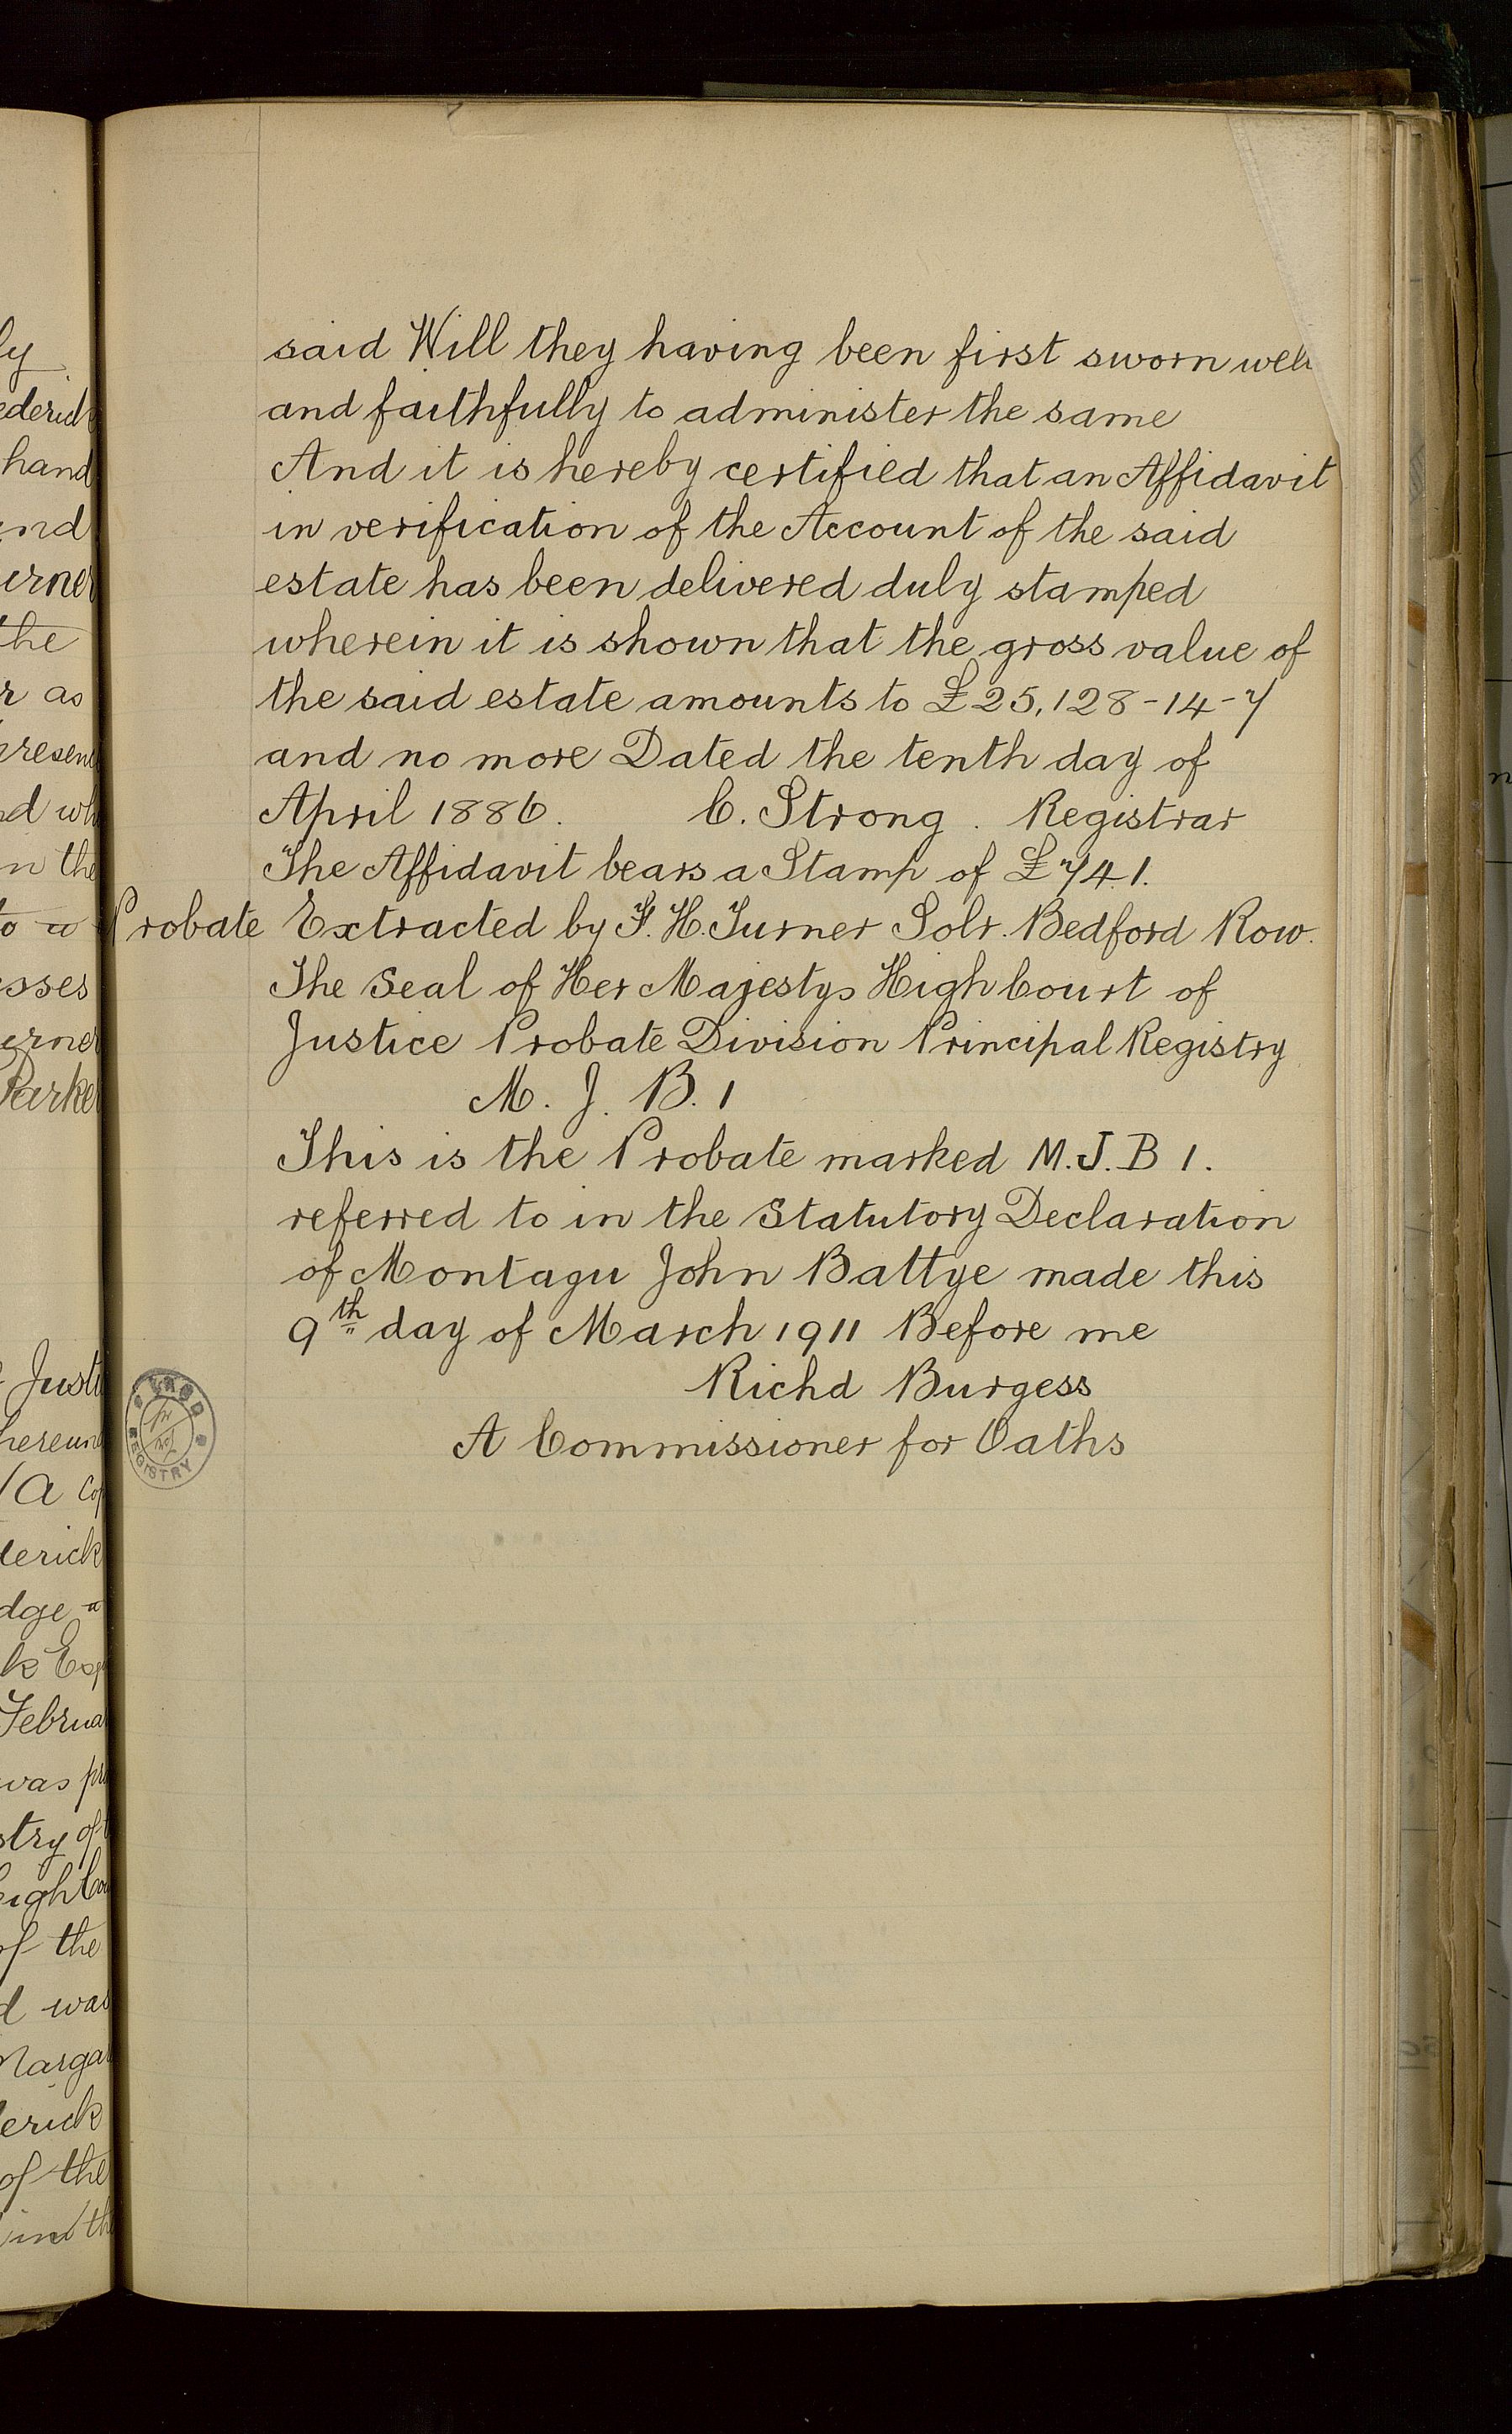 said Will they having been first sworn well
and faithfully to administer the same
And it is hereby certified that an Affidavit
in verification of the Account of the said
estate has been delivered duly stamped
wherein it is shown that the gross value of
the said estate amounts to £25,128-14-7
and no more Dated the tenth day of
April 1886. C. Strong. Registrar
The Affidavit bears a Stamp of £741.
Probate Extracted by F. H. Turner Solr. Bedford Row.
The Seal of Her Majestys High Court of
Justice Probate Division Principal Registry
M. J. B. 1
This is the Probate marked M.J.B 1.
referred to in the Statutory Declaration
of Montagu John Battye made this
9th day of March 1911 Before me
Richd Burgess
A Commissioner for Oaths
LAND
REGISTRY